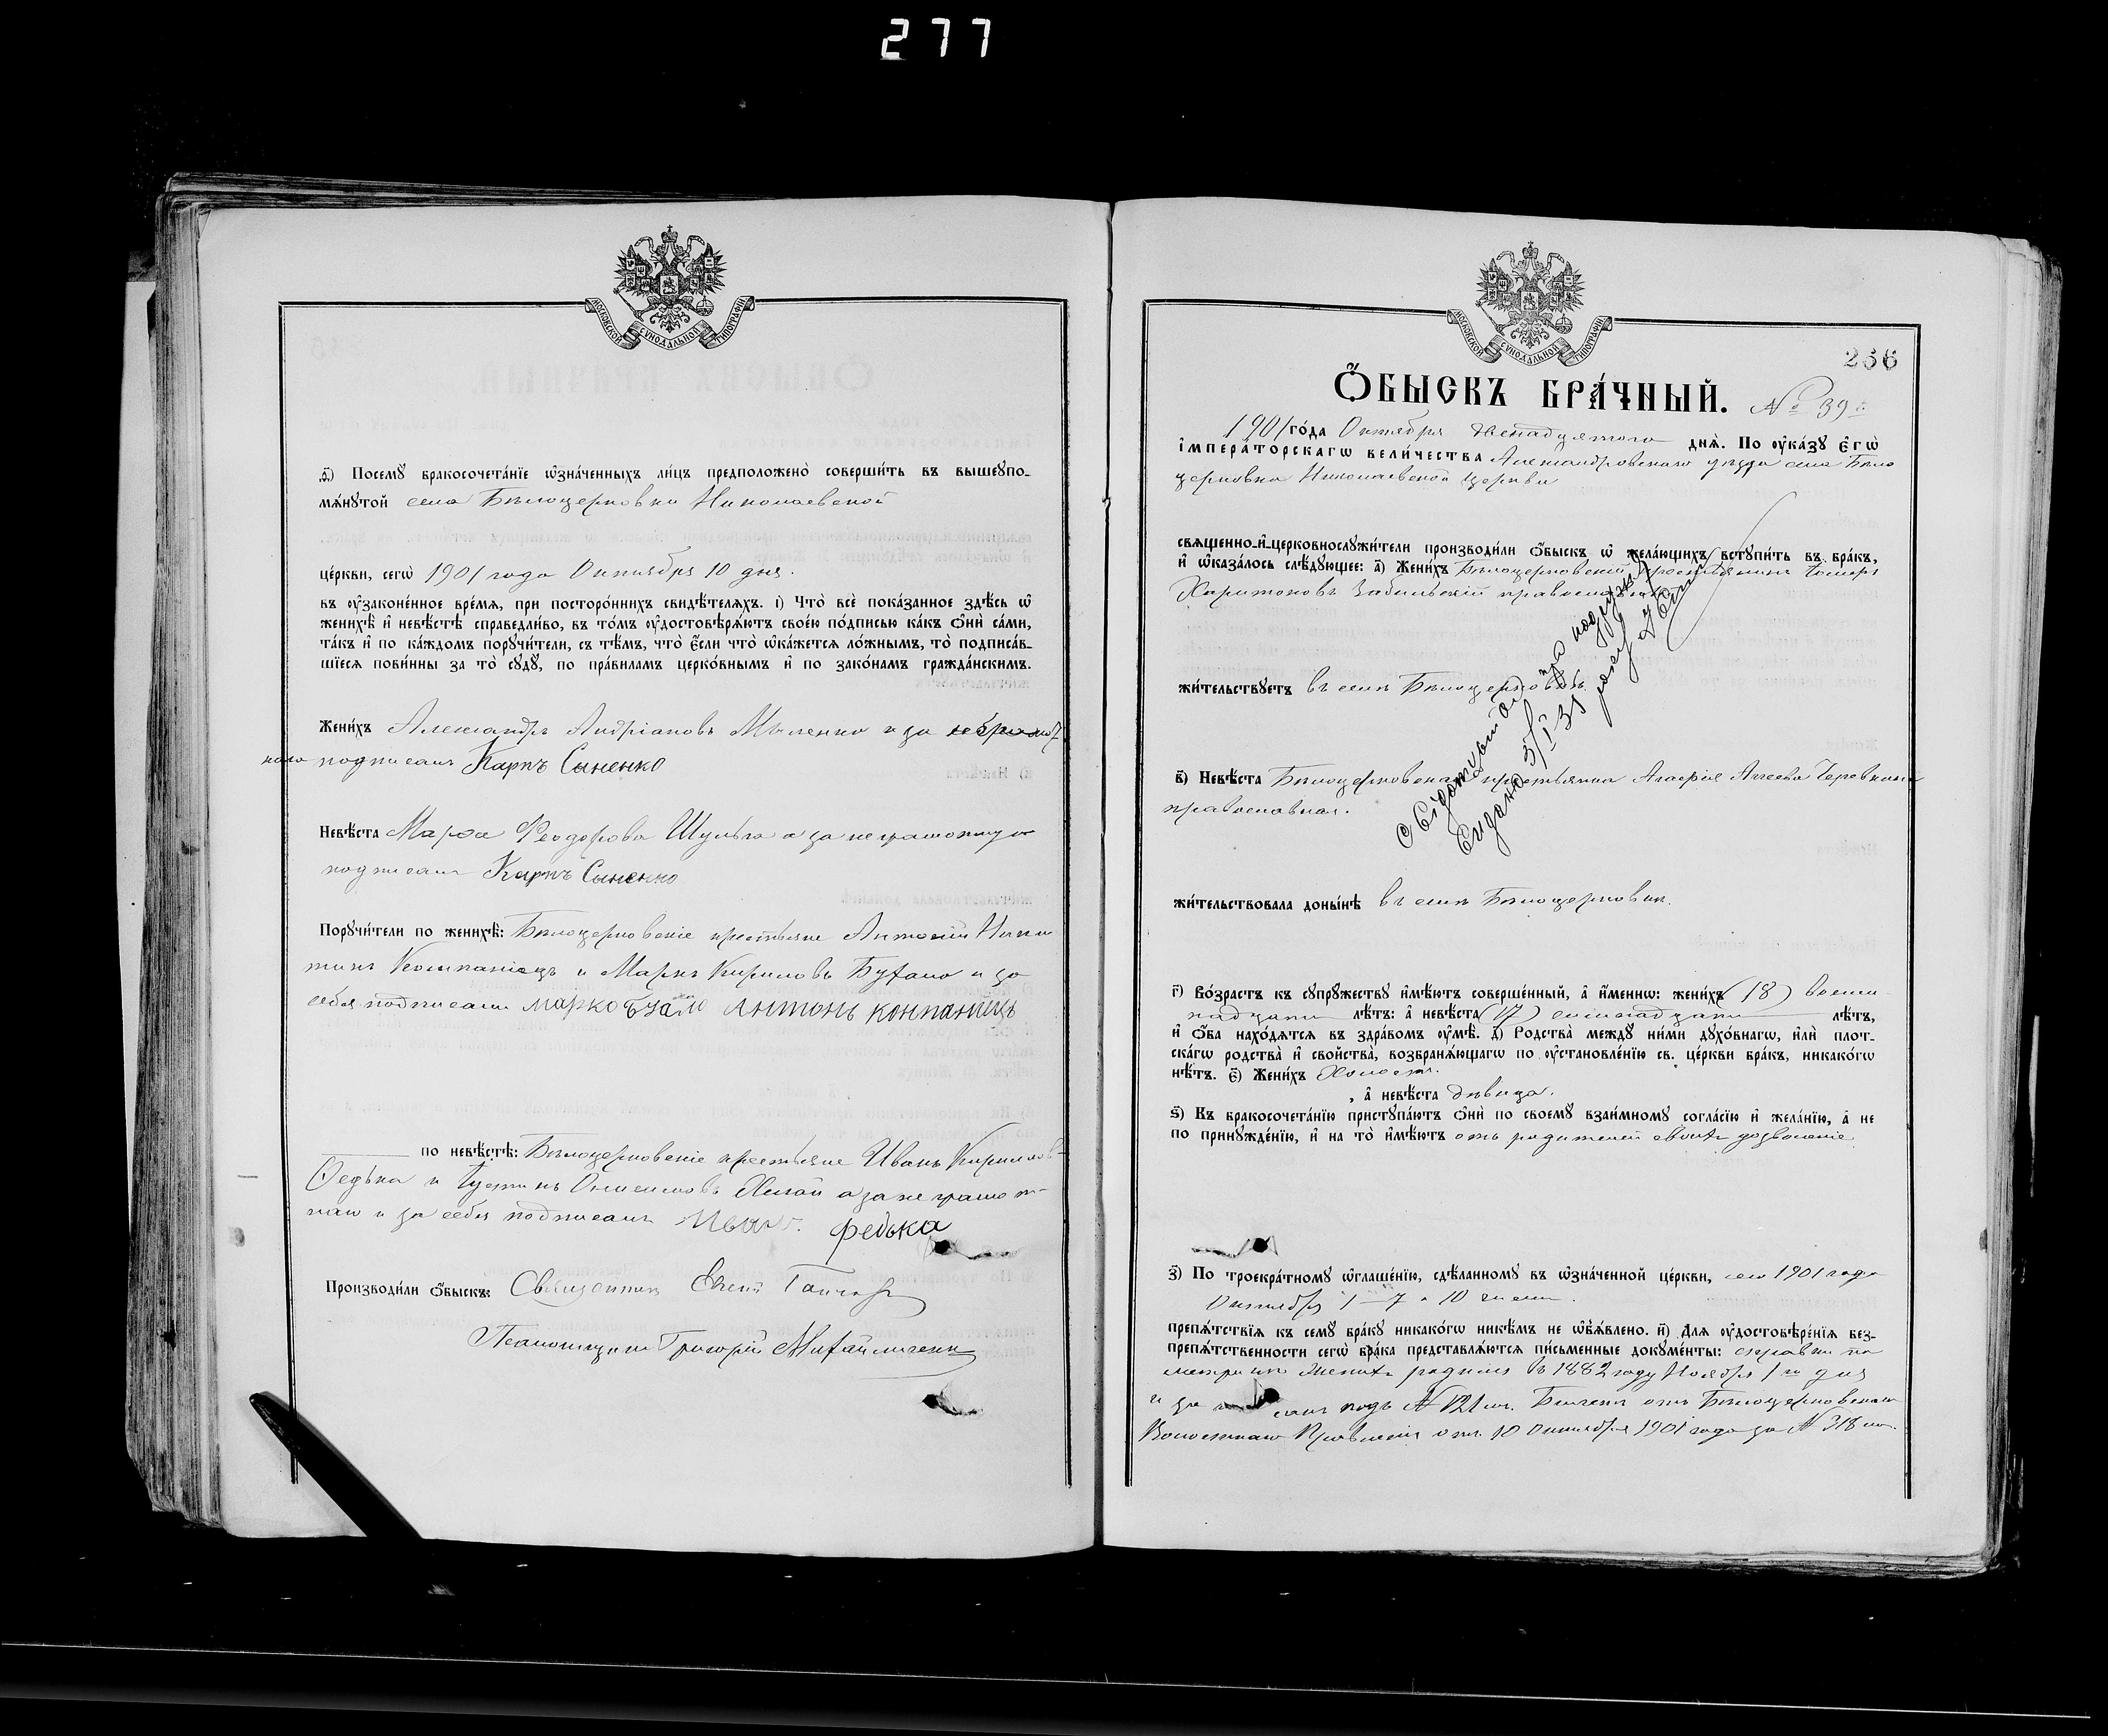 277
МОСКОВСКОЙ СУНОДАЛЬНОЙ ТИПОГРАФІИ
ѳ҃) Посемꙋ бракосочета́нїе ѡ҆зна́ченныхъ ли́цъ предположено̀ соверши́ть въ вышеꙋпо-
мѧ́нꙋтой села Бѣлоцерковки Николаевской
це́ркви, сегѡ̀ 1901 года Октября 10 дня.
въ ᲂу҆зако́ненное вре́мѧ, при посторо́ннихъ свидѣ́телѧхъ. і҃) Что̀ всѐ пока́занное здѣ́сь ѡ҆
женихѣ̀ и҆ невѣ́стѣ справедли́во, въ то́мъ ᲂу҆достовѣрѧ́ютъ свое́ю по́дписью ка́къ ѻ҆нѝ са́ми,
та́къ и҆ по ка́ждомъ порꙋчи́тели, съ тѣ́мъ, что̀ є҆́сли что̀ ѡ҆ка́жетсѧ ло́жнымъ, то̀ подписа́в-
шїесѧ пови́нны за то̀ сꙋдꙋ̀, по пра́виламъ церко́внымъ и҆ по зако́намъ гражда́нскимъ.
Жени́хъ Александръ Андріановъ а за неграмот
наго подписалъ Карпъ Сыненко
Невѣ́ста Марѳа Ѳеодорова Шульга а за неграмотную
подписалъ Карпъ Сыненко
Порꙋчи́тели по женихѣ̀: Бѣлоцерковскіе крестьяне Антоній Ники
тинъ Компаніецъ и Маркъ Кириловъ и за
себя подписали марко Антонъ конпаніецъ
по невѣ́стѣ: Бѣлоцерковскіе крестьяне Иванъ Кирилов-
Ѳедька и Іустинъ Онисимовъ а за неграмот-
наго и за себя подписалъ Иванъ федька
Производи́ли ѻ҆́быскъ: Священникъ
Псаломщикъ Григорій Михайличенко
МОСКОВСКОЙ СУНОДАЛЬНОЙ ТИПОГРАФІИ
266
Ѻ҆́БЫСКЪ БРА́ЧНЫЙ. № 39й
1901 го́да Октября двенадцятого днѧ̀. По ᲂу҆ка́зꙋ є҆гѡ̀
і҆мпера́торскагѡ вели́чества Александровскаго уѣзда села Бѣло
церковки Николаевской церкви
свѧщенно-и҆-церковнослꙋжи́тели производи́ли ѻ҆́быскъ ѡ҆ жела́ющихъ встꙋпи́ть въ бра́къ,
и҆ ѡ҆каза́лось слѣ́дꙋющее: а҃) Жени́хъ Бѣлоцерковскій крестьянинъ
Харитоновъ православный
жи́тельствꙋетъ въ селѣ Бѣлоцерковкѣ.
в҃) Невѣ́ста Бѣлоцерковская крестьянка
православная.
жи́тельствовала доны́нѣ въ селѣ Бѣлоцерковкѣ.
г҃) Во́зрастъ къ сꙋпрꙋ́жествꙋ и҆мѣ́ютъ соверше́нный, а҆ и҆́меннѡ: жени́хъ (18) восем-
надцати лѣ́тъ: а҆ невѣ́ста (17) семнадцати лѣ́тъ,
и҆ ѻ҆́ба нахо́дѧтсѧ въ здра́вомъ ᲂу҆мѣ̀. д҃) Родства̀ междꙋ ни́ми дꙋхо́внагѡ, и҆лѝ плот-
ска́гѡ родства̀ и҆ сво́йства, возбранѧ́ющагѡ по ᲂу҆становле́нїю св. це́ркви бра́къ, никако́гѡ
нѣ́тъ. є҃) Жени́хъ Холостъ.
, а҆ невѣ́ста дѣвица.
ѕ҃) Къ бракосочета́нїю пристꙋпа́ютъ ѻ҆нѝ по своемꙋ̀ взаи́мномꙋ согла́сїю и҆ жела́нїю, а҆ не
по принꙋжде́нїю, и҆ на то̀ и҆мѣ́ютъ отъ родителей своихъ дозволеніе
з҃) По троекра́тномꙋ ѡ҆глаше́нїю, сдѣ́ланномꙋ въ ѡ҆зна́ченной це́ркви, сего 1901 года
Октября 1 – 7 и 10 числа.
препѧ́тствїѧ къ семꙋ̀ бра́кꙋ никако́гѡ никѣ́мъ не ѡ҆б̾ѧ́влено. и҃) Длѧ ᲂу҆достовѣре́нїѧ без-
препѧ́тственности сегѡ̀ бра́ка представлѧ́ютсѧ пи́сьменные докꙋме́нты: справки по
метрикѣ женихъ родился въ 1882 году Ноября 1го дня
и за подъ № 121м. Билетъ отъ Бѣлоцерковскаго
Волостнаго Правленія отъ 10 Октября 1901 года за № 318м.